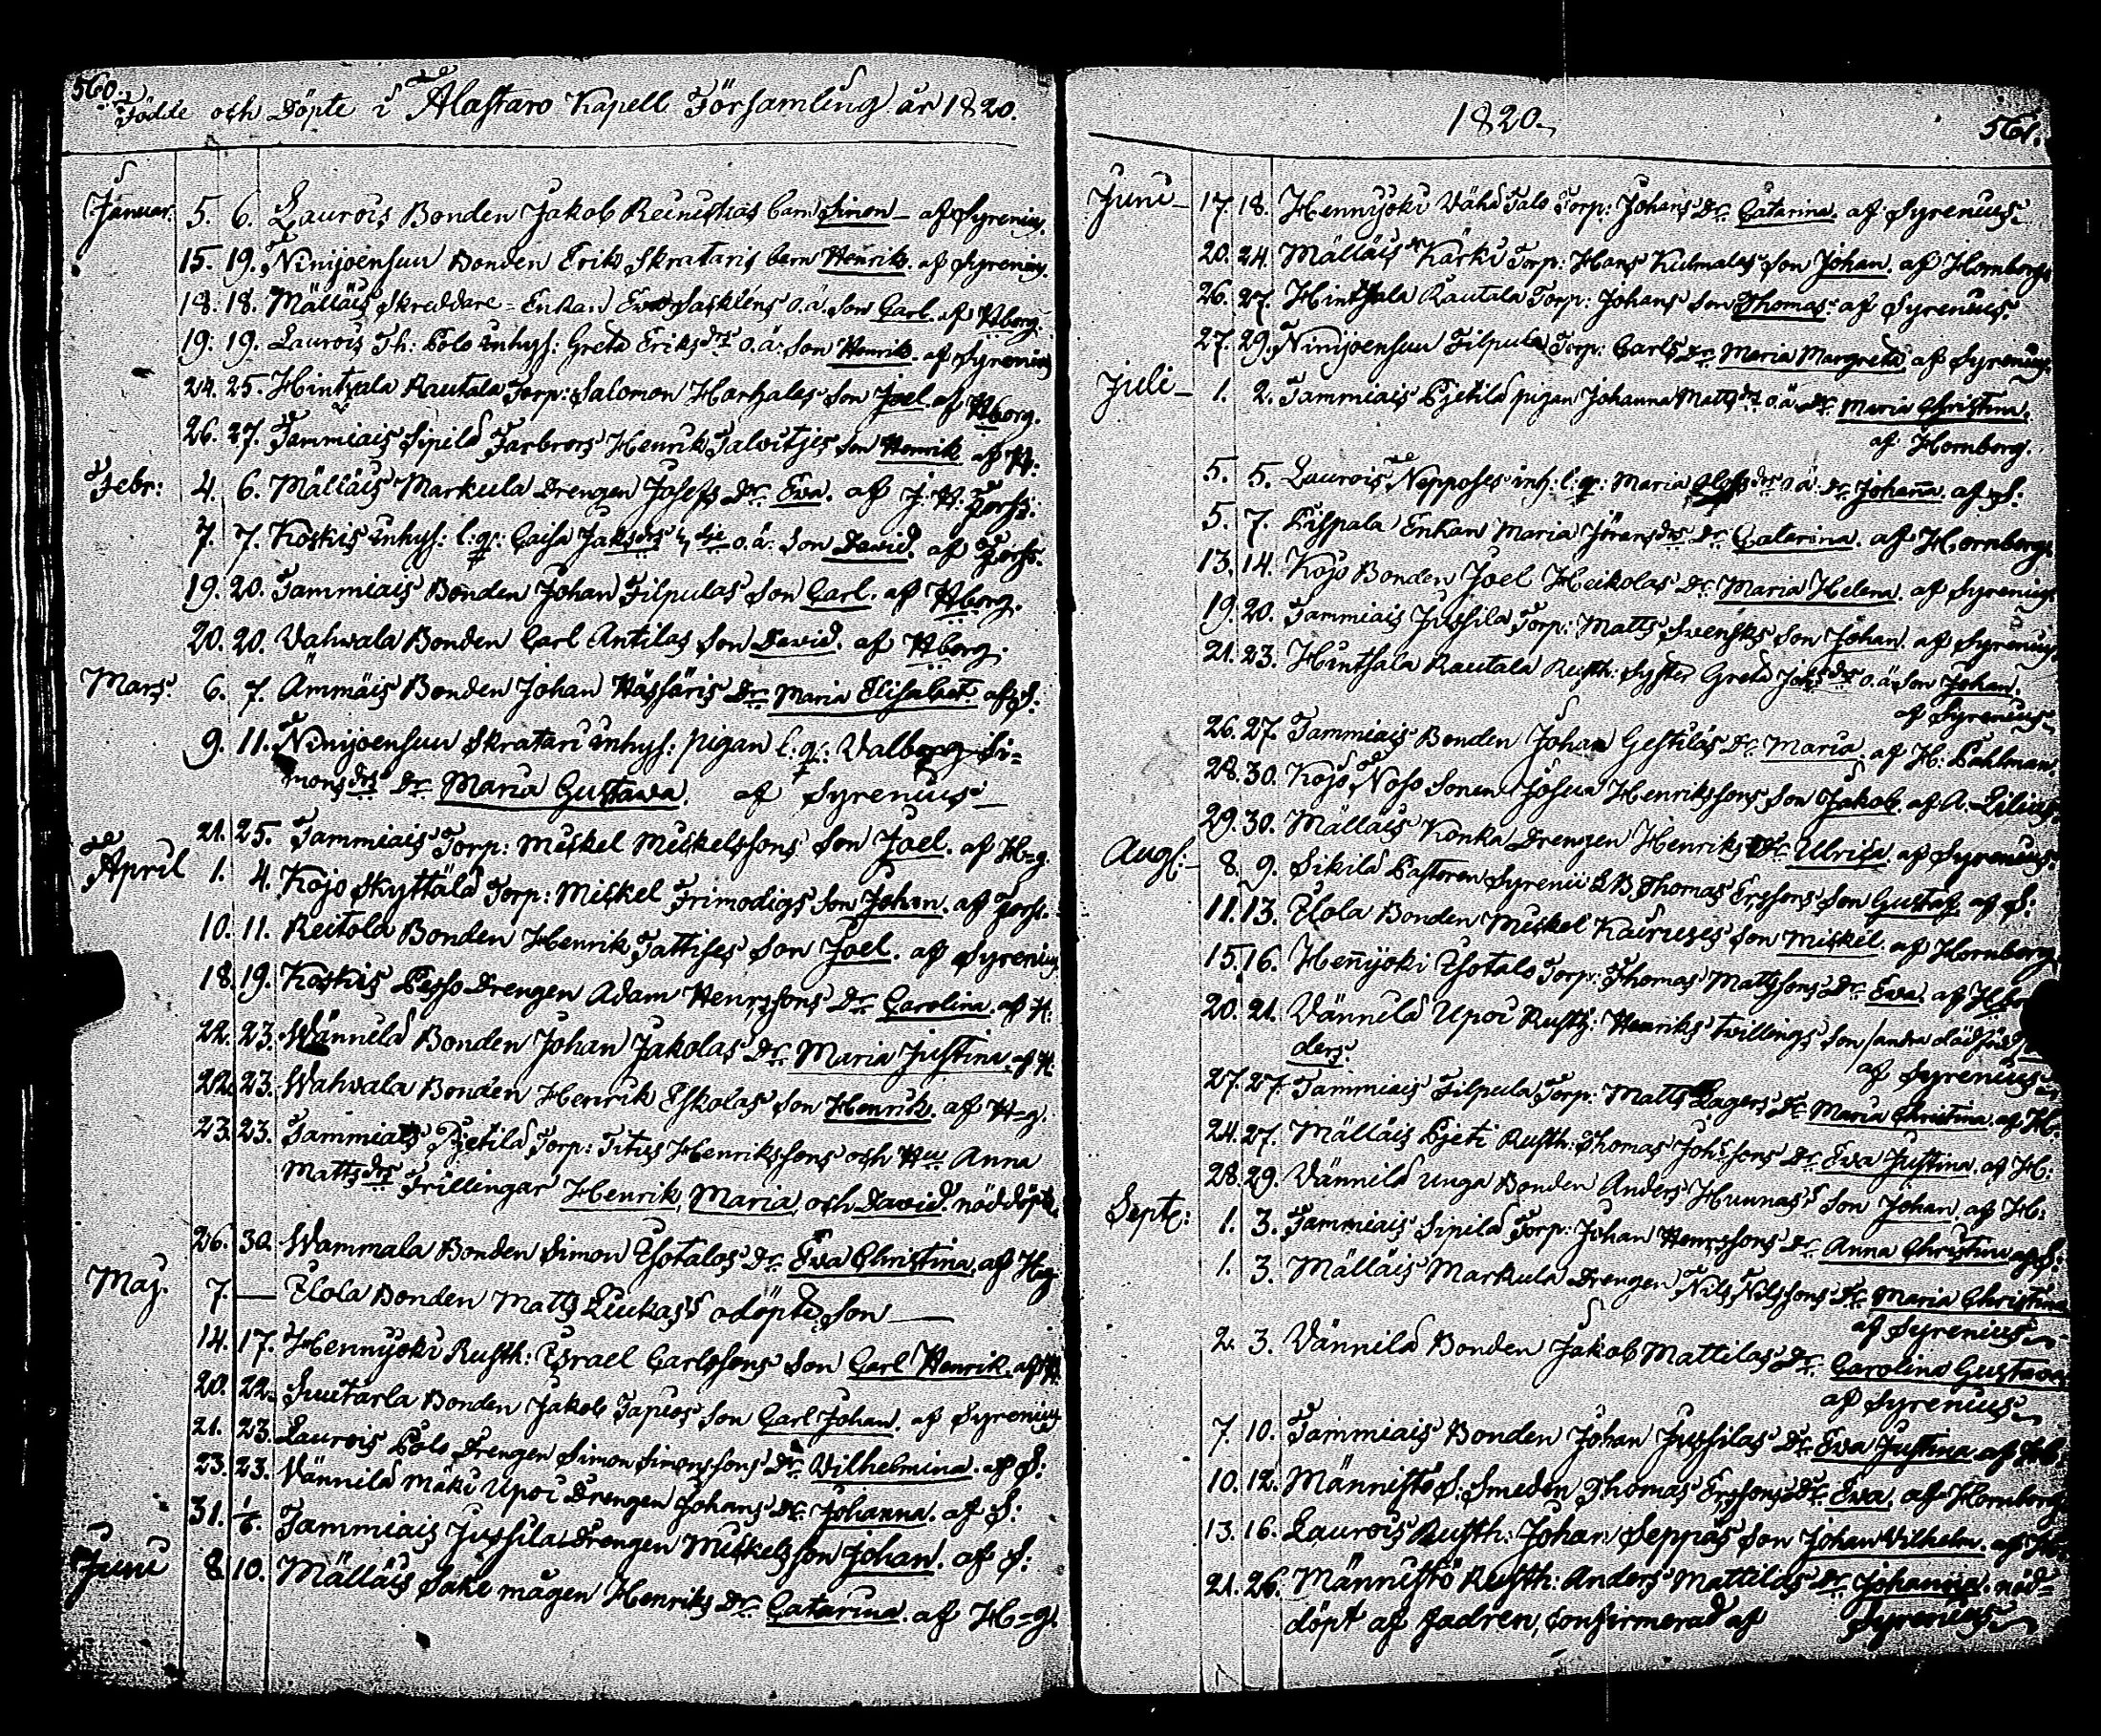 560.
Födde och Döpte i Alastaro Kapell Församling år 1820.
Januar. 5. 6. Laurois Bonden Jakob Reinistias barn Simon - af Syrenius.
15. 19. Ninijoensuu Bonden Erik Skrataris barn Henrik. af Syrenius.
18. 18. Mälläis Skreddare-Enkan Eva Sasklens o.ä. son Carl. af Hberg.
19. 19. Laurois Th: Polo inhys: Greta Eriksdrs o.ä. son Henrik. af Syrenius
24. 25. Hintsala Rautala Torp: Salomon Harhalas son Joel. af Hberg.
26. 27. Tammiais Sipilä Farbrors Henrik Talvitjes son Henrik. af H:
Febr: 4. 6. Mälläis Markula Drengen Josefs Dr. Eva. af J. H: Forss:
7. 7. Koskis inhys: l: q: Caisa Jaksdrs o.ä. son David. af Forss.
19. 20. Tammiais Bonden Johan Filpulas son Carl. af Hberg.
20. 20. Vahvala Bonden Carl Antilas son David. af Hberg.
Mars. 6. 7. Ämmäis Bonden Johan Hässäris Dr. Maria Elisabet. af S:
9. 11. Ninijoensuu Skratari inhys: pigan l: q: Valborg Si=
monsdrs Dr. Maria Gustava. af Syrenius
21. 25. Tammiais Torp: Mickel Mickelssons son Joel. af H=g.
April 1. 4. Kojo Skyttälä Torp: Mickel Frimodigs son Johan. af Forss.
10. 11. Reitola Bonden Henrik Tattises son Joel. af Syrenius
18. 19. Koskis Pesso Drengen Adam Henrssons Dr. Carolina. af H:
22. 23. Wännilä Bonden Johan Jakolas Dr. Maria Justina. af H:
22. 23. Wahvala Bonden Henrik Eskolas son Henrik. af H=g.
23. 23. Tammiais Pjetilä Torp: Titus Henrikssons och Hu Anna
Mattsdrs Trillingar Henrik, Maria, och David. nöddöpt.
26. 30. Wammala Bonden Simon Ysotalos Dr. Eva Christina. af H=g.
Maj. 7. — Ylola Bonden Matts Liukas's odöpte son —
14. 17. Hennijoki Rusth: Israel Carlssons son Carl Henrik. af H.
20. 22. Suutarla Bonden Jakob Tapios son Carl Johan. af Syrenius
21. 23. Laurois Polo Drengen Simon Simonssons Dr. Vilhelmina. af S:
23. 23. Vännilä Mäki Upoi Drengen Johans Dr. Johanna. af S:
31. 1/6. Tammiais Jussila Drengen Mickels son Johan. af S:
Juni 8. 10. Mälläis Sake mågen Henriks Dr. Catarina. af H=g.
1820. 561.
Juni - 17. 18. Hennijoki Vähä Talo Torp: Johans Dr. Catarina. af Syrenius.
20. 24. Mälläis Kärki Torp: Hans Kulmalas son Johan. af Hornberg
26. 27. Hintsala Rautala Torp: Johans son Thomas. af Syrenius.
27. 29. Ninijoensuu Filpula Torp: Carls Dr. Maria Margreta af Syrenius.
Juli - 1. 2. Tammiais Pjetilä pigan Johanna Mattsdrs o.ä. Dr. Maria Christina.
af Hornberg.
5. 5. Laurois Nepposes inh: l: q: Maria Olofsdrs o.ä. Dr. Johanna. af S:
5. 7. Pispala Enkan Maria Jöransdrs Dr. Catarina. af Hornberg
13. 14. Kojo Bonden Joel Heikolas Dr. Maria Helena. af Syrenius.
19. 20. Tammiais Jussila Torp: Matts Svensks son Johan. af Syrenius.
21. 23. Hintsala Rautala Rusth: Syster Greta Johsdrs o.ä. son Johan.
af Syrenius
26. 27. Tammiais Bonden Johan Gestilas Dr. Maria. af H: Pahlman.
28. 30. Kojo Noso Sonen Josua Henrikssons son Jakob. af A. Lilius.
29. 30. Mälläis Konka Drengen Henriks Dr. Ulrica af Syrenius.
Aug: - 8. 9. Sikilä Pastoren Syrenii LB Thomas Erssons son Gustaf af S:
11. 13. Ylola Bonden Mickel Kairises son Mickel. af Hornberg
15. 16. Hennyoki Ysotalo Torp: Thomas Mattssons Dr. Eva. af Hbo
20. 21. Vännilä Upoi Rusth: Henriks tvillings son /andra dödföd/
ders.
af Syrenius
27. 27. Tammiais Filpula Torp: Matts Lagers Dr. Maria Christina. af H:
24. 27. Mälläis Pjeti Rusth: Thomas Johssons Dr. Eva Justina. af H:
28. 29. Vännilä unga Bonden Anders Hunnas's son Johan. af H:
Sept: 1. 3. Tammiais Sipilä Torp: Johan Henrssons Dr. Anna Christina af S:
1. 3. Mälläis Markula Drengen Nils Nilssons Dr. Maria Christina
af Syrenius
2. 3. Vännilä Bonden Jakob Mattilas Dr. Carolina Gustava
af Syrenius
7. 10. Tammiais Bonden Johan Jussilas Dr. Eva Justina af Hb.
10. 12. Männistö S: Smeden Thomas Erssons Dr. Eva. af Hornberg
13. 16. Laurois Rusth: Johan Seppäs son Johan Vilhelm. af H:
21. 26. Männistö Rusth: Anders Mattilas Dr. Johanna. nöd=
döpt af fadren, confirmerad af Syrenius